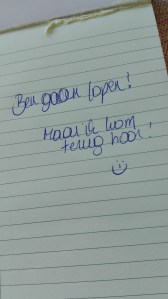 Ben gaan lopen!
Maar ik kom
terug hoor!